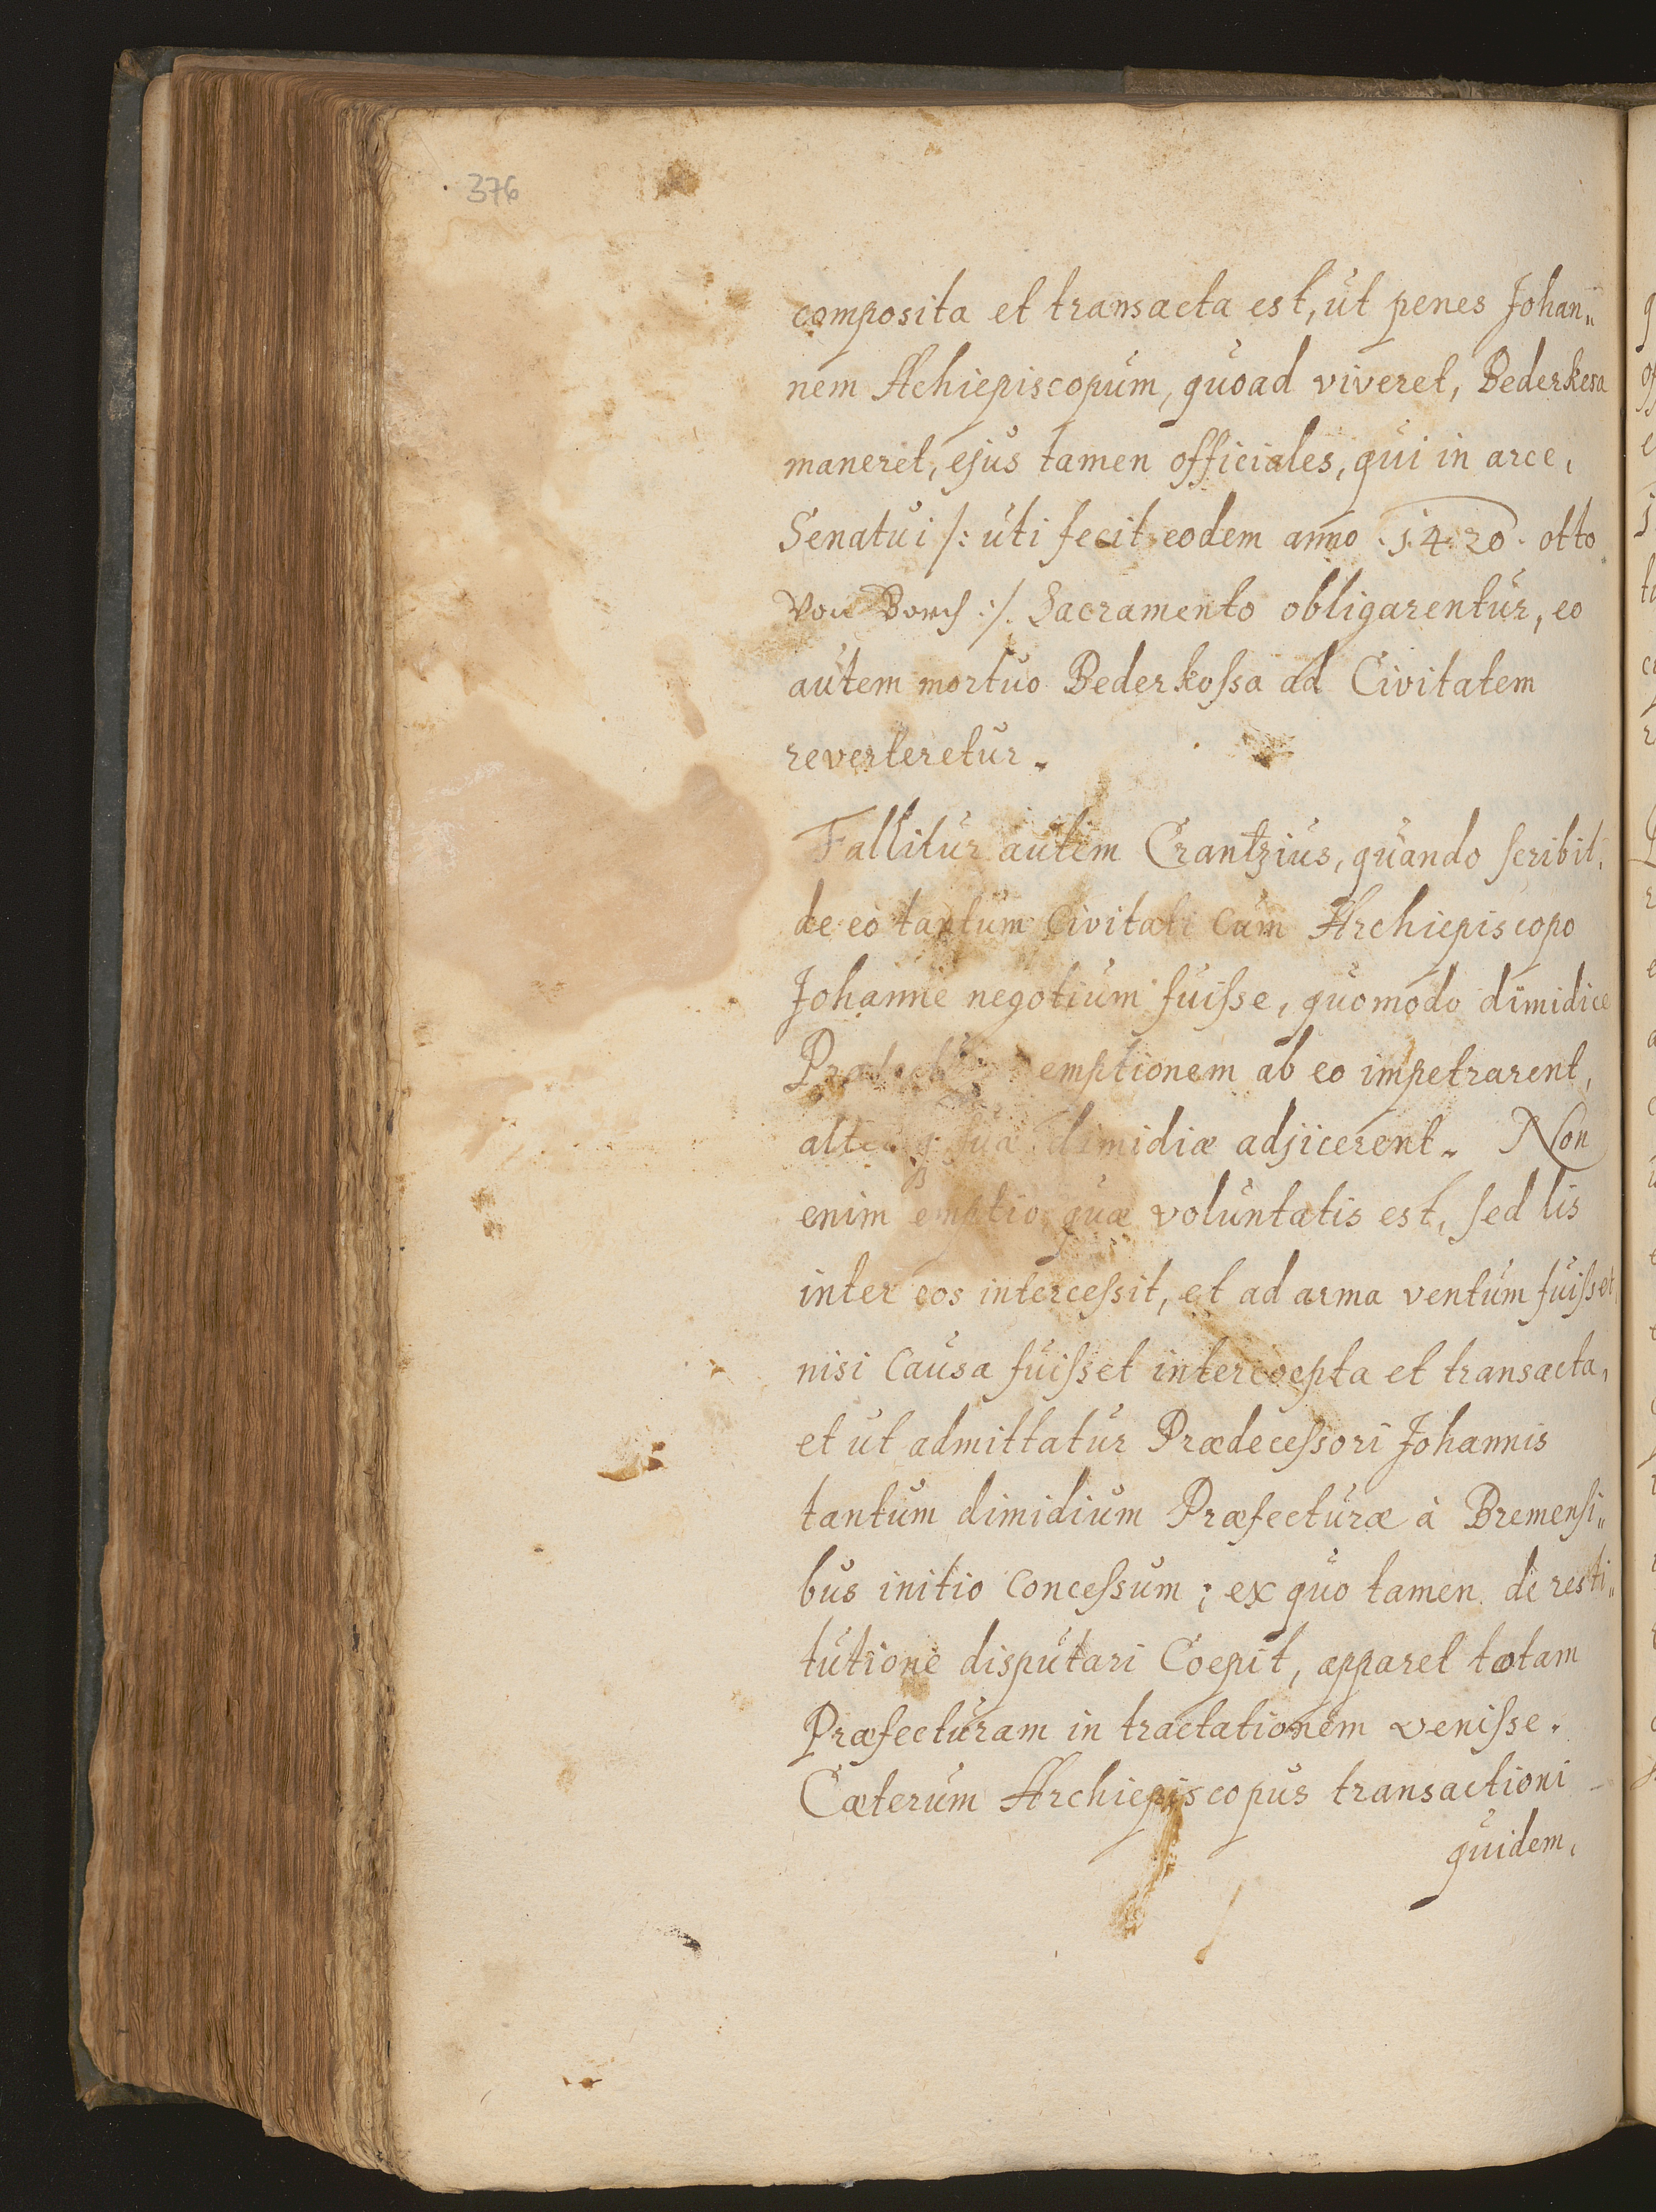 376
composita et transacta est, ut penes Johan„
nem Achiepiscopum, quoad viveret, Bederkesa
maneret, ejus tamen officiales, qui in arce,
Senatui /: uti fecit eodem anno 1420. otto
Von Borch :/. Sacramento obligarentur, eo
autem mortuo Bederkossa ad Civitatem
reverteretur.
Fallitur autem Crantzius, quando scribit,
de eo tantum Civitati Cum Archiepiscopo
Johanne negotium fuisse, quomodo dimidiæ
emptionem ab eo impetrarent,
suæ dimidiæ adjicerent. Non
enim emptio, quæ voluntatis est, sed lis
inter eos intercessit, et ad arma ventum fuisset,
nisi Causa fuisset intercoepta et transacta,
et ut admittatur Prædecessori Johannis
tantum dimidium Præfecturæ à Bremensi„
bus initio Concessum; ex quo tamen de resti„
tutione disputari Coepit, apparet totam
Præfecturam in tractationem venisse.
Cæterum Archiepiscopus transactioni
quidem,